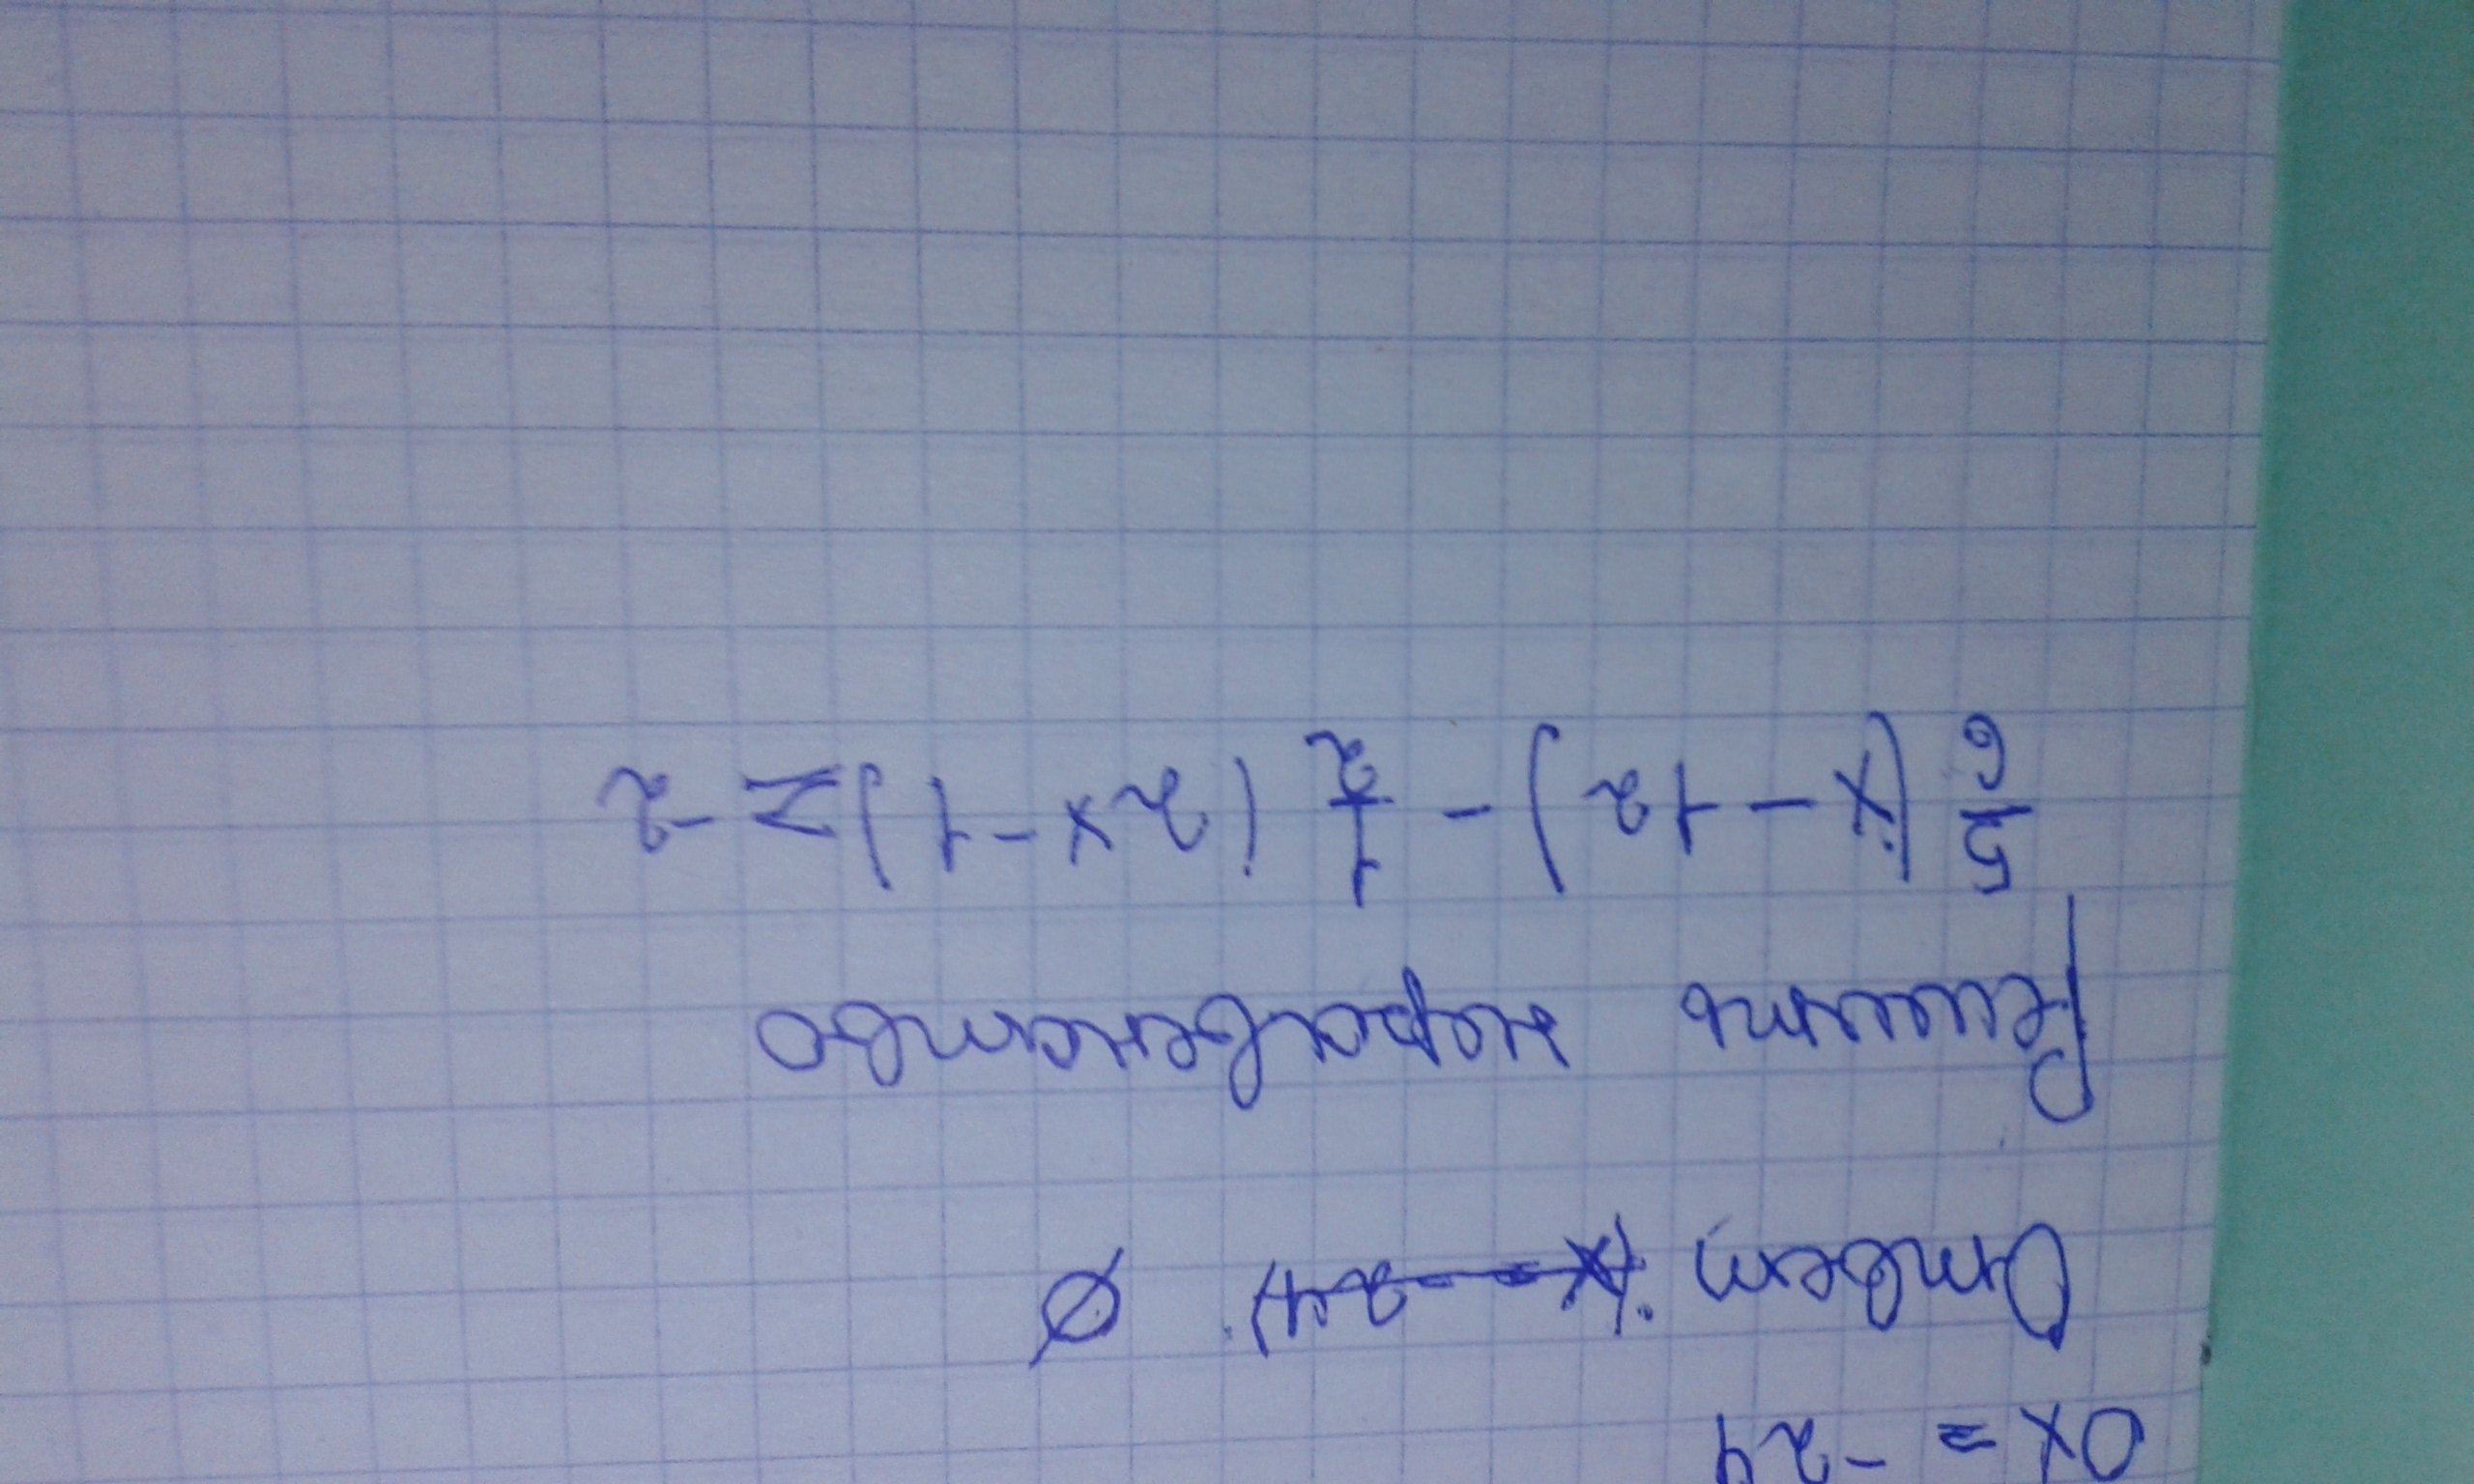 0x = -24
Ответ: ~~x = -24~~. ∅
Решить неравенство
5/6 (x - 12) - 1/2 (2x - 1) ≥ -2